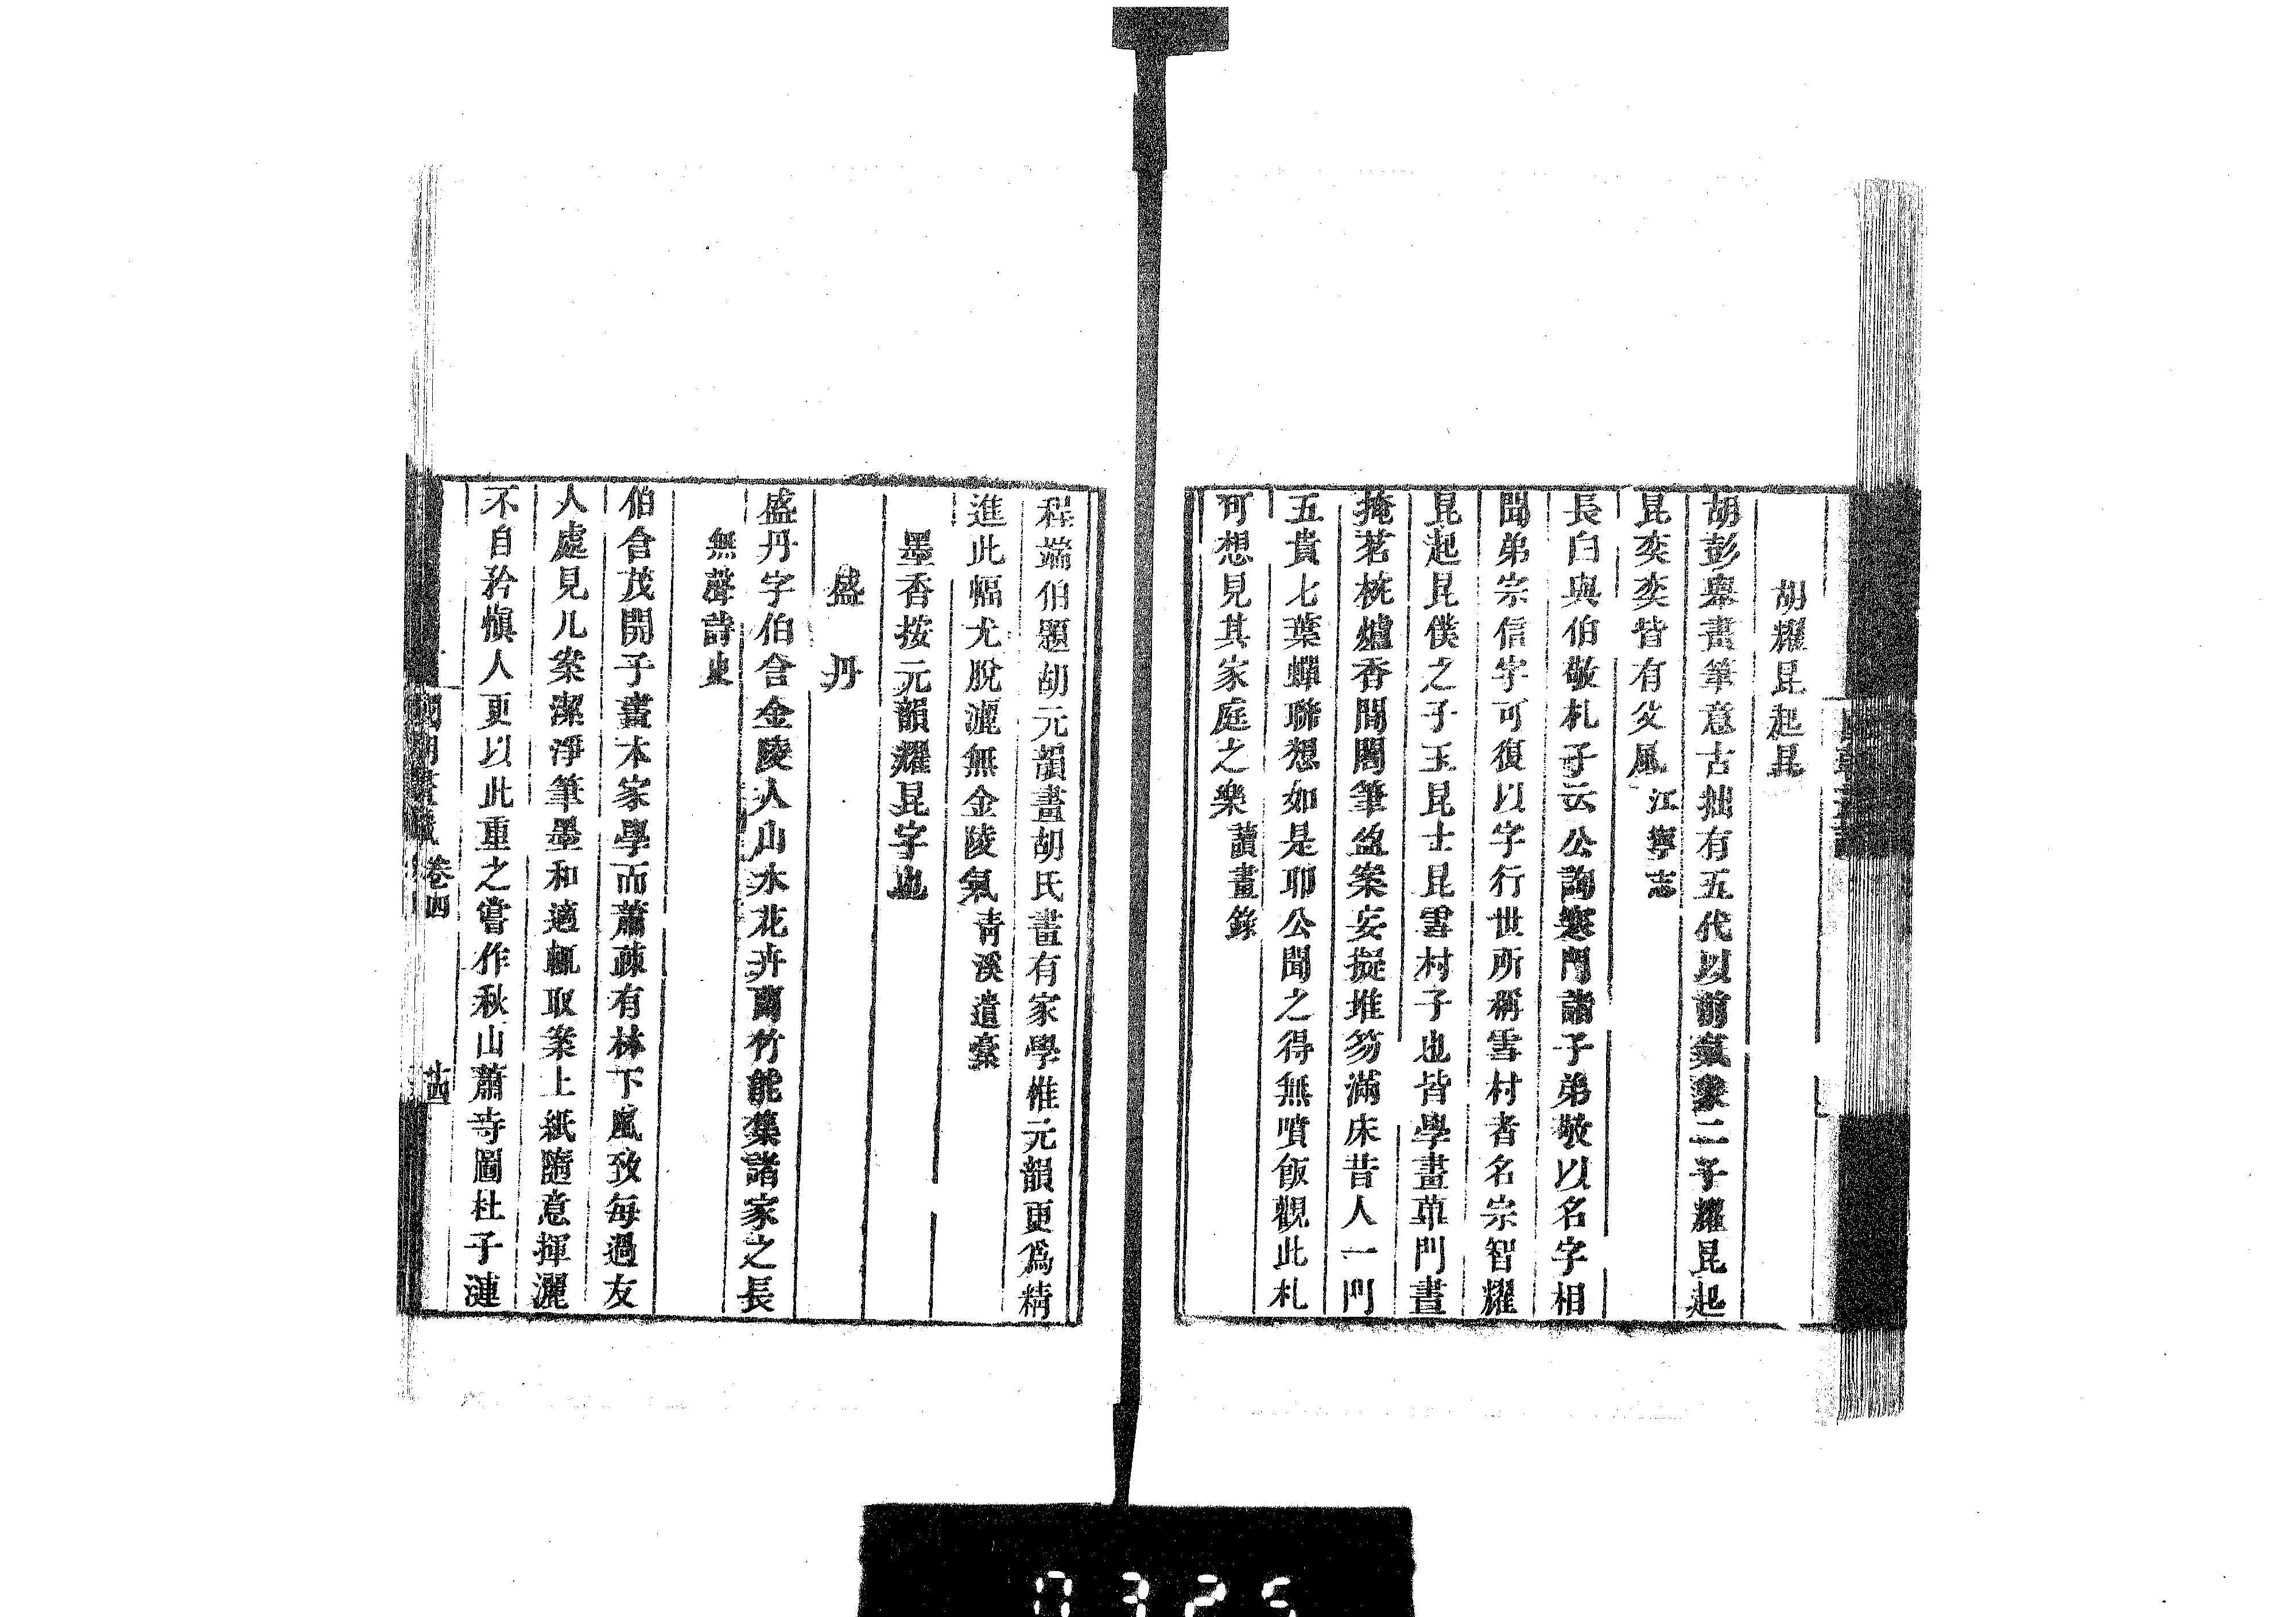 胡耀昆起昆
胡彭舉畫筆意古拙有五代以前氣象二子耀昆起
昆奕奕皆有父風江寧志
長白與伯敬札子云公詢寒門諸子弟敬以名字相
聞弟宗信字可復以字行世所稱雪村者名宗智耀
昆起昆僕之子玉昆士昆雪村子也皆學畫蓽門晝
掩茗椀爐香間閣筆盈案妄擬堆笏滿床昔人一門
五貴七葉蟬聯想如是耶公聞之得無噴飯觀此札
可想見其家庭之樂讀畫錄
程端伯題胡元韻畫胡氏畫有家學惟元韻更爲精
進此幅尤脫灑無金陵氣青溪遺稾
墨香按元韻耀昆字也
盛丹
盛丹字伯含金陵人山水花卉蘭竹能集諸家之長
無聲詩史
伯含茂開子畫本家學而蕭疎有林下風致每過友
人處見几案潔淨筆墨和適輒取案上紙隨意揮灑
不自矜愼人更以此重之嘗作秋山蕭寺圖杜子漣
國朝畫識 卷四 十四
0325